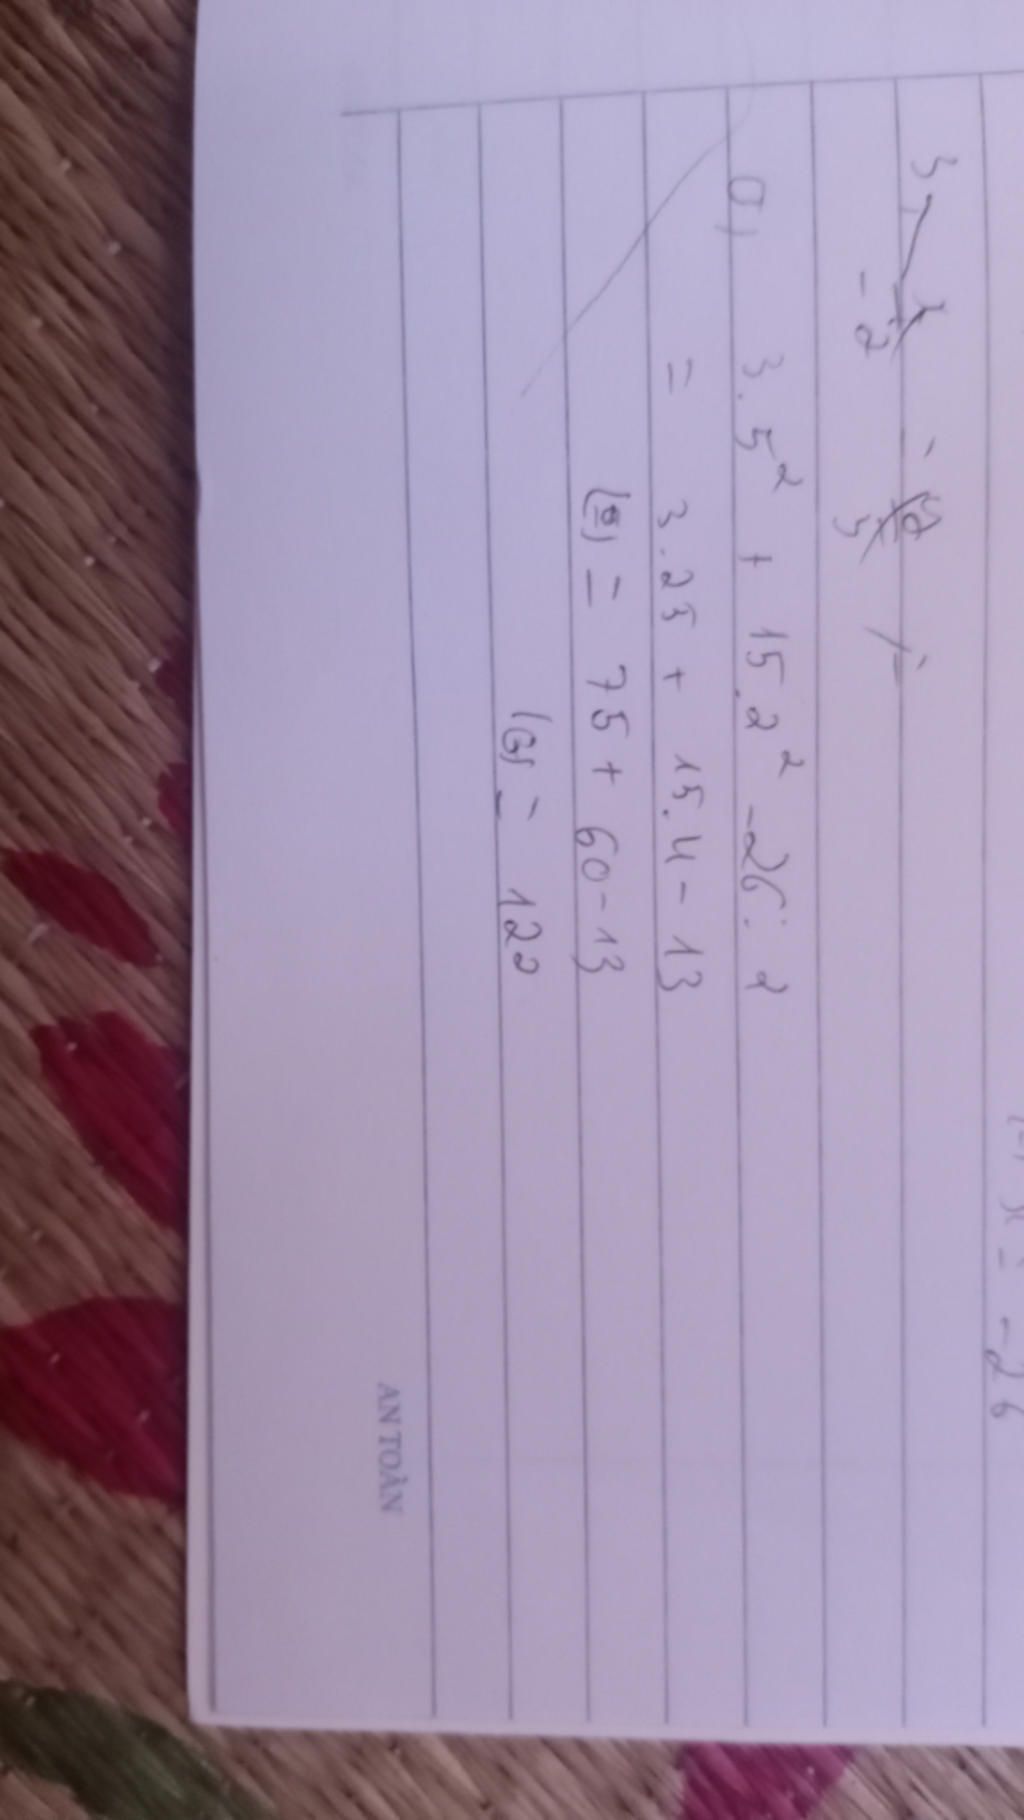 x = -26
a) 3.5² + 15.2² - 26:2
= 3.25 + 15.4 - 13
= 75 + 60 - 13
= 122
AN TOÀN